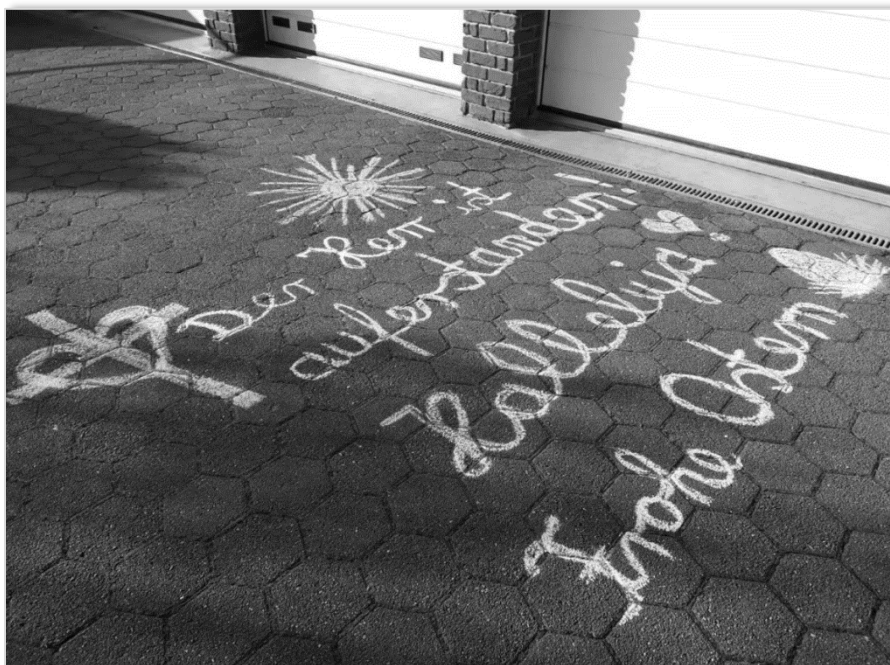 Der Herr ist
auferstanden!
Halleluja!
Frohe Ostern